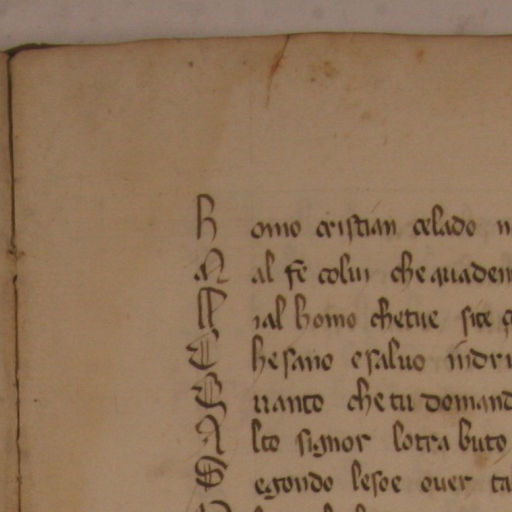 H omo cristian celado
M al fe colui che quaden
M ial homo chetue site
C he sano e saluo indri
Q uanto che tu domand
A lto signor lo tra buto
S egondo lesoe ouer ta